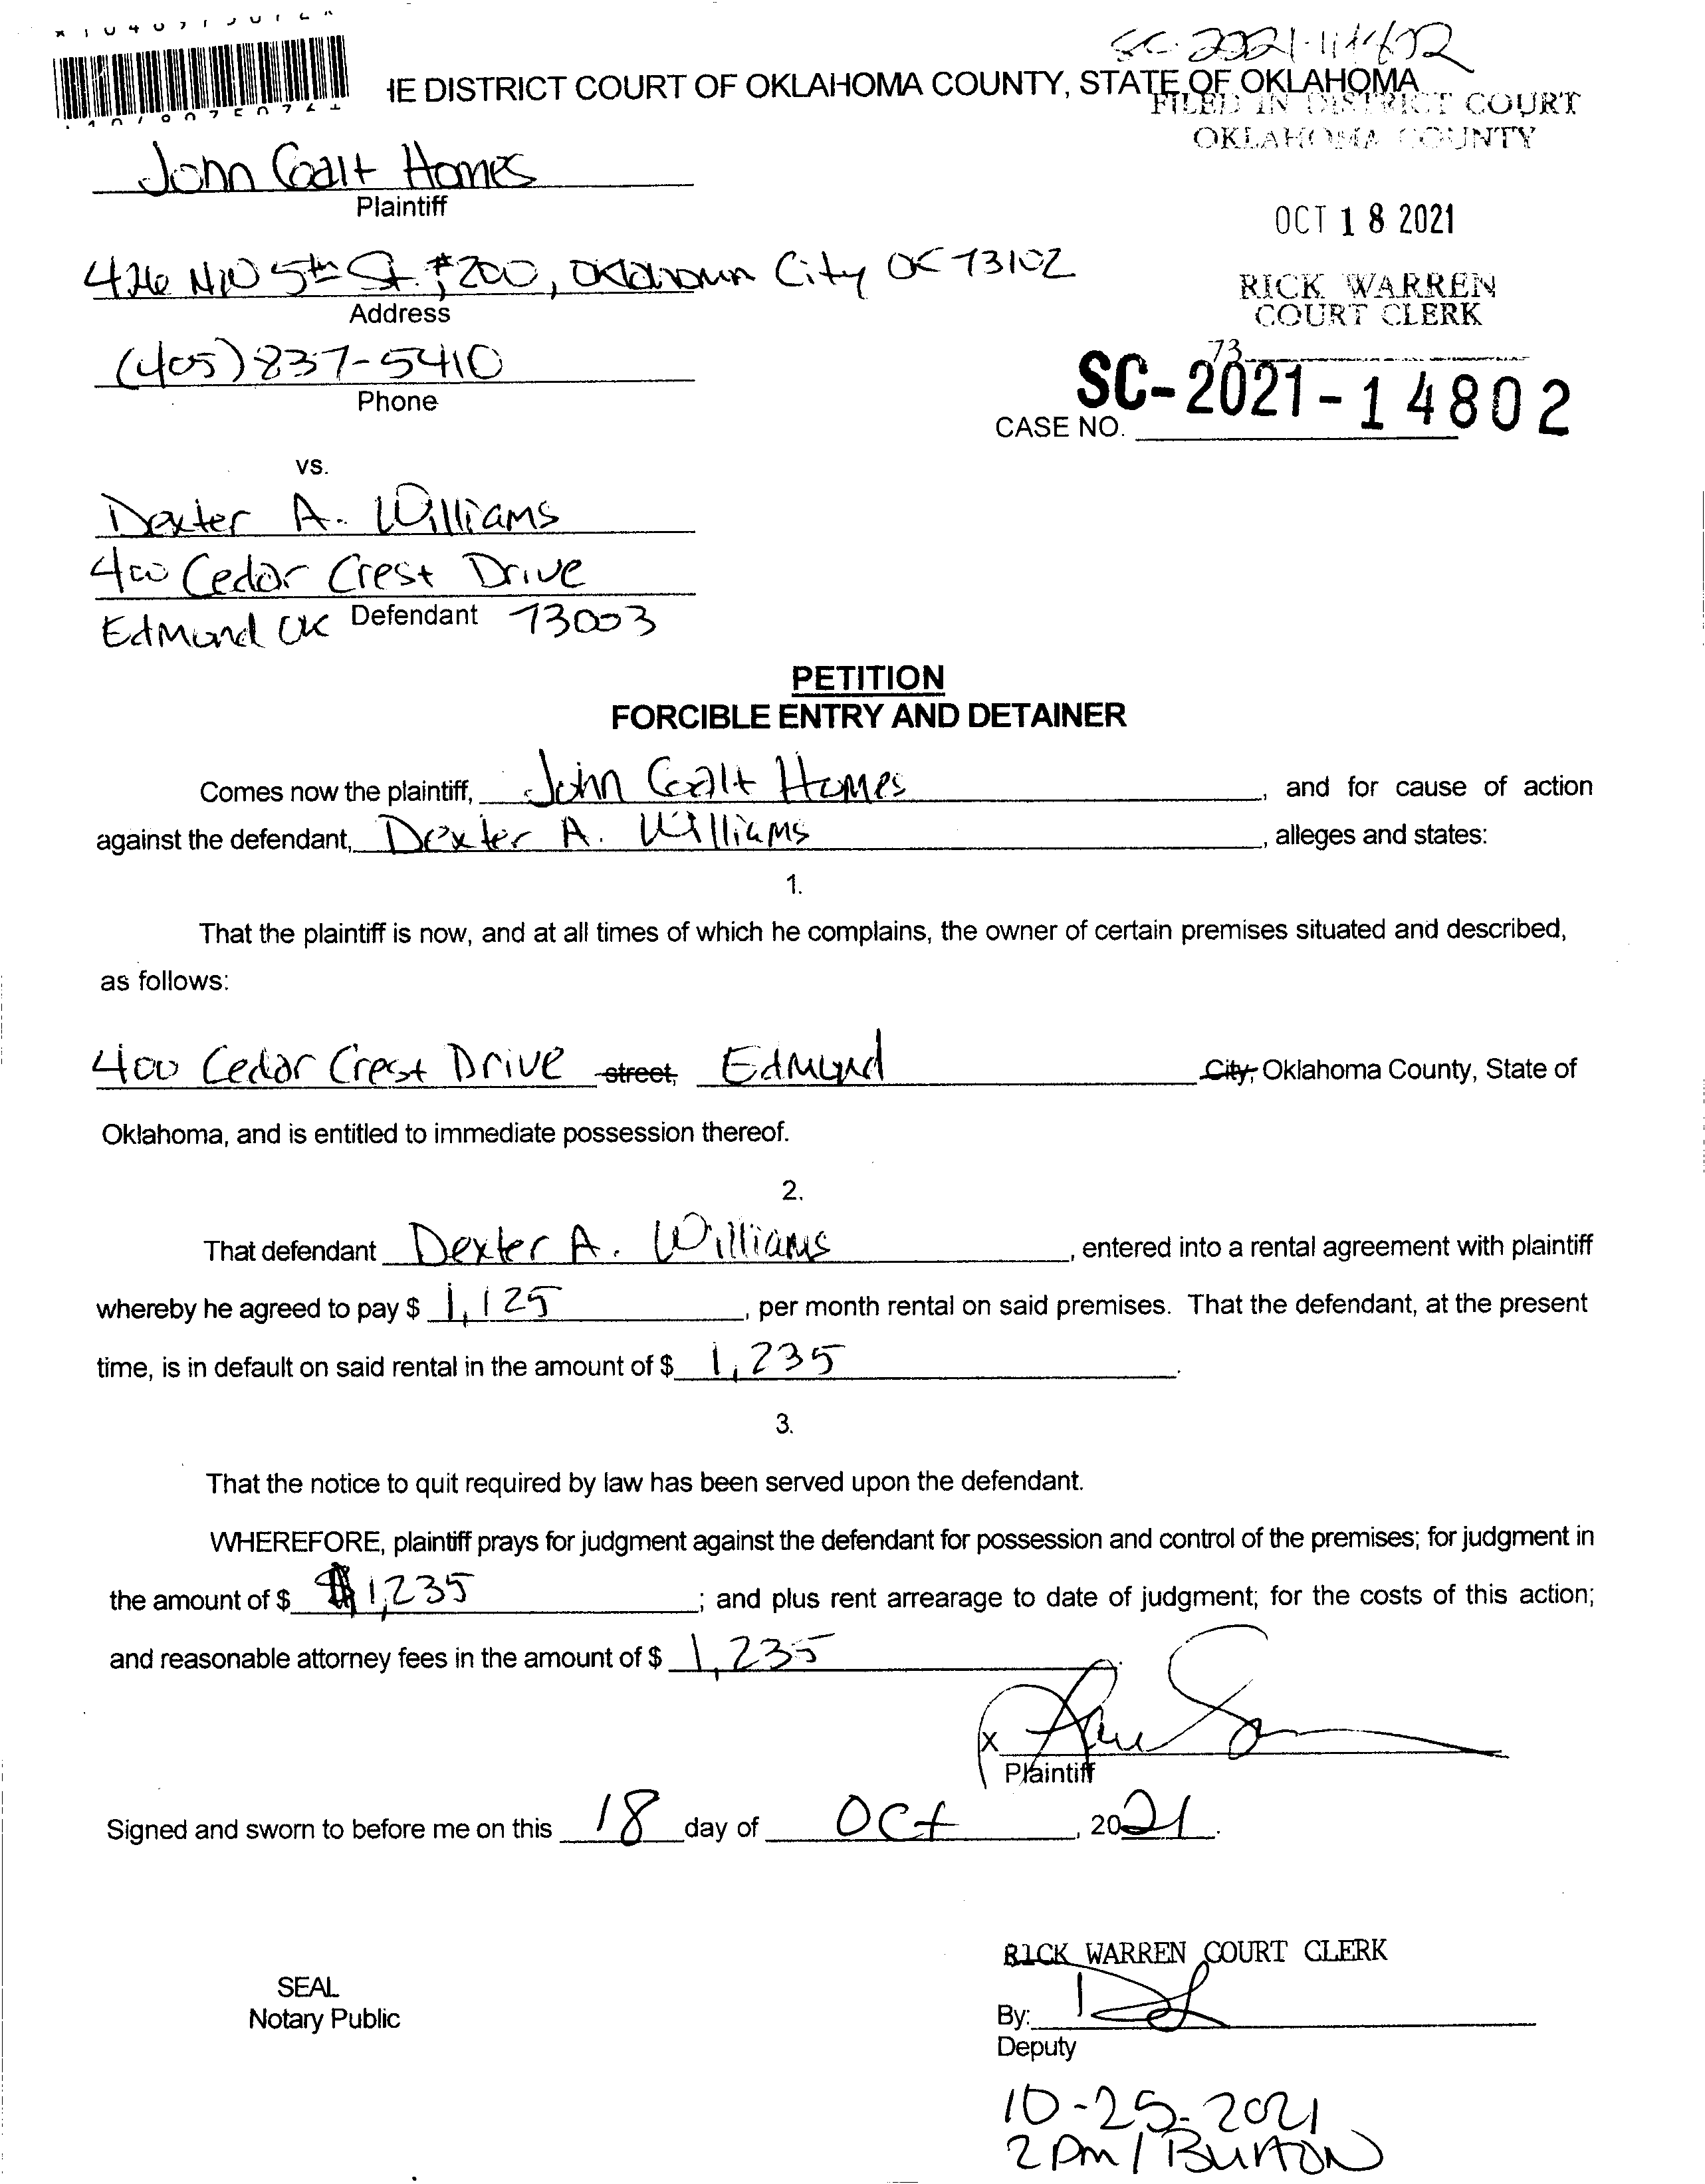 SC-2021-14802
IE DISTRICT COURT OF OKLAHOMA COUNTY, STATE OF OKLAHOMA
FILED IN DISTRICT COURT
OKLAHOMA COUNTY
John Galt Homes
Plaintiff
OCT 18 2021
426 NW 5th St. #200, Oklahoma City OK 73102
Address
RICK WARREN
COURT CLERK
(405) 837-5410
Phone
73
SC-2021-14802
CASE NO.
vs.
Dexter A. Williams
400 Cedar Crest Drive
Edmond OK Defendant 73003
PETITION
FORCIBLE ENTRY AND DETAINER
Comes now the plaintiff, John Galt Homes, and for cause of action
against the defendant, Dexter A. Williams, alleges and states:
1.
That the plaintiff is now, and at all times of which he complains, the owner of certain premises situated and described,
as follows:
400 Cedar Crest Drive street, Edmond City, Oklahoma County, State of
Oklahoma, and is entitled to immediate possession thereof.
2.
That defendant Dexter A. Williams, entered into a rental agreement with plaintiff
whereby he agreed to pay $ 1,125, per month rental on said premises. That the defendant, at the present
time, is in default on said rental in the amount of $ 1,235.
3.
That the notice to quit required by law has been served upon the defendant.
WHEREFORE, plaintiff prays for judgment against the defendant for possession and control of the premises; for judgment in
the amount of $ $1,235; and plus rent arrearage to date of judgment; for the costs of this action;
and reasonable attorney fees in the amount of $ 1,235
x
Plaintiff
Signed and sworn to before me on this 18 day of Oct, 2021.
RICK WARREN COURT CLERK
SEAL
Notary Public
By:
Deputy
10-25-2021
2 pm / BURTON